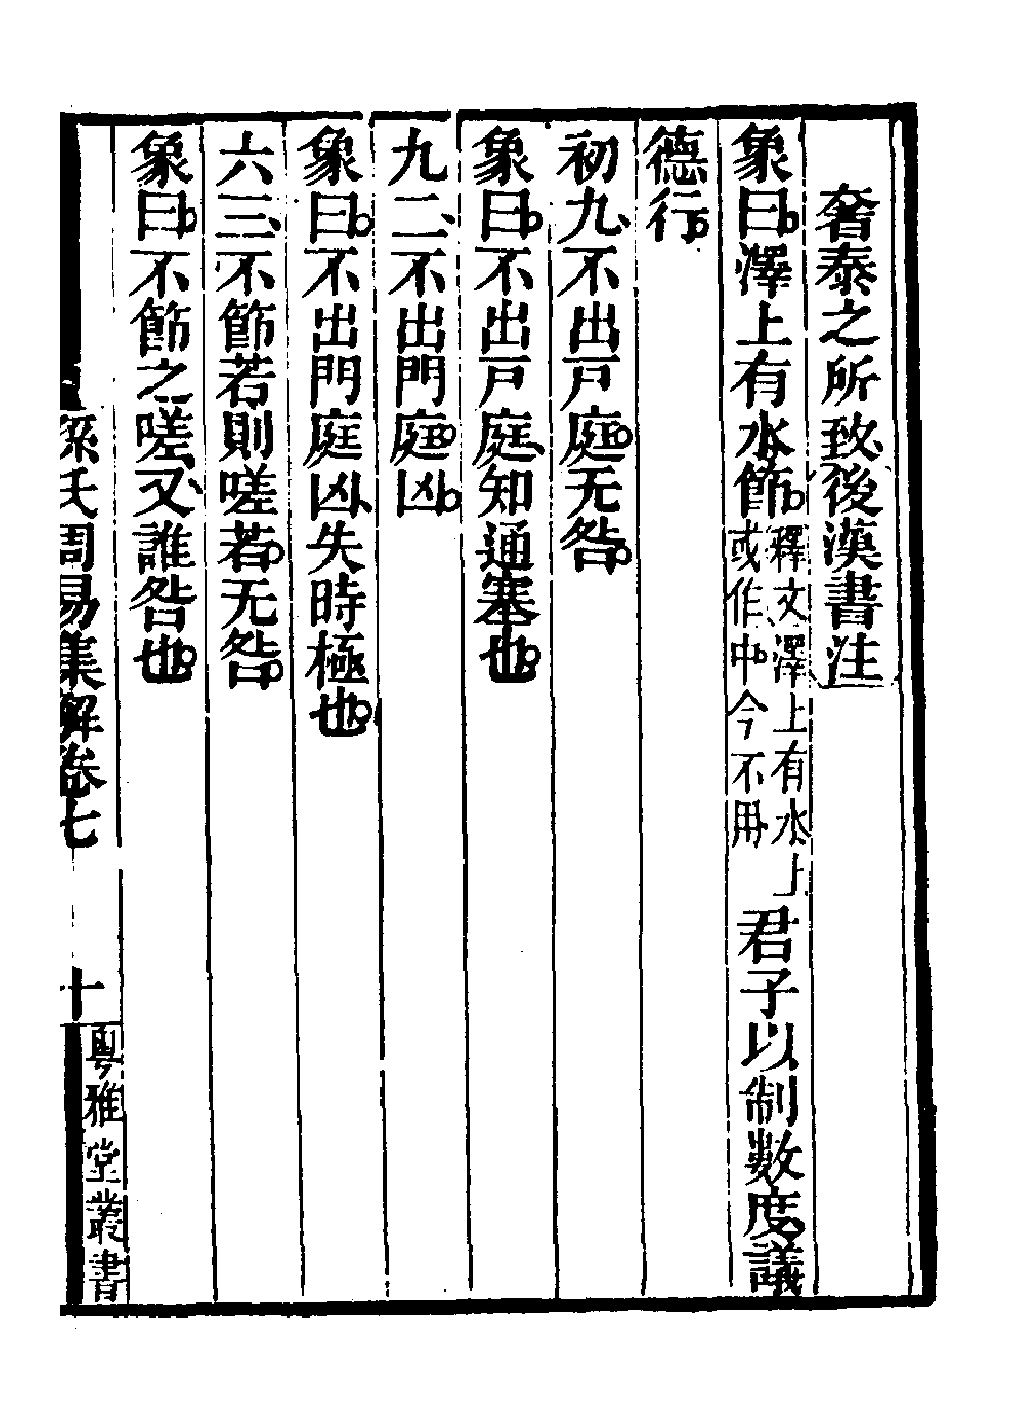 奢泰之所致後漢書注
象曰澤上有水節釋文澤上有水上或作中今不用君子以制數度議
德行
初九不出戸庭无咎
象曰不出戸庭知通塞也
九二不出門庭凶
象曰不出門庭凶失時極也
六三不節若則嗟若无咎
象曰不節之嗟又誰咎也
孫氏周易集解卷七
十
粤雅堂叢書